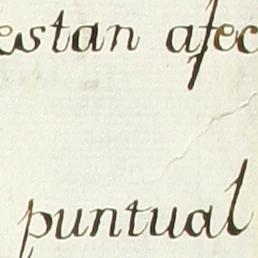 estan afec
puntual